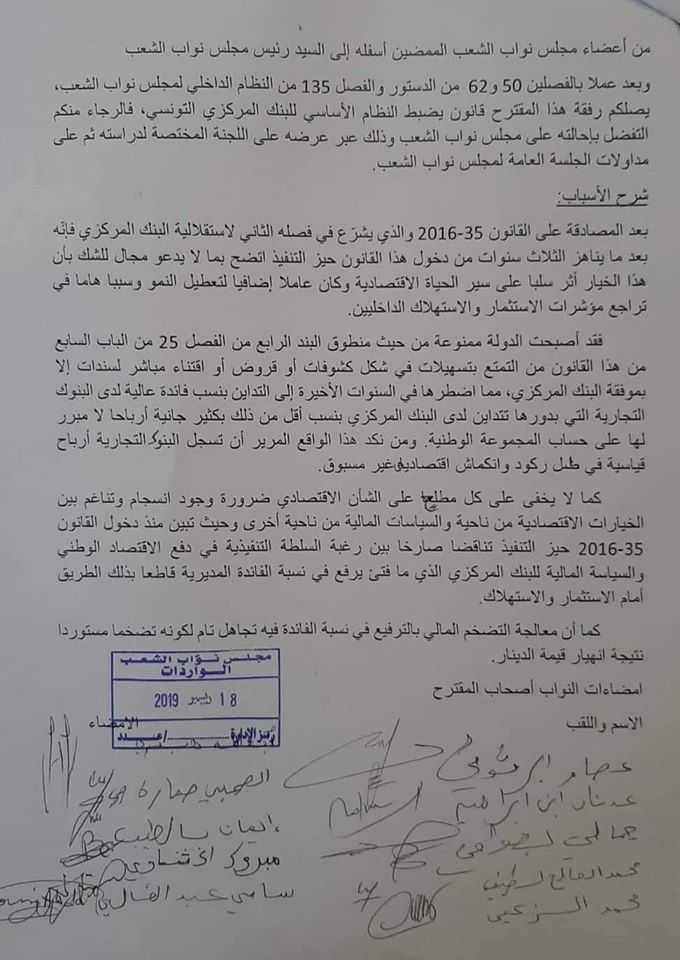 من أعضاء مجلس نواب الشعب الممضين أسفله إلى السيد رئيس مجلس نواب الشعب
وبعد عملا بالفصلين 50 و62 من الدستور والفصل 135 من النظام الداخلي لمجلس نواب الشعب،
يصلكم رفقة هذا المقترح قانون يضبط النظام الأساسي للبنك المركزي التونسي، فالرجاء منكم
التفضل بإحالته على مجلس نواب الشعب وذلك عبر عرضه على اللجنة المختصة لدراسته ثم على
مداولات الجلسة العامة لمجلس نواب الشعب.
شرح الأسباب:
بعد المصادقة على القانون 35-2016 والذي يشرّع في فصله الثاني لاستقلالية البنك المركزي فإنّه
بعد ما يناهز الثلاث سنوات من دخول هذا القانون حيز التنفيذ اتضح بما لا يدعو مجال للشك بأن
هذا الخيار أثر سلبا على سير الحياة الاقتصادية وكان عاملا إضافيا لتعطيل النمو وسببا هاما في
تراجع مؤشرات الاستثمار والاستهلاك الداخليين.
فقد أصبحت الدولة ممنوعة من حيث منطوق البند الرابع من الفصل 25 من الباب السابع
من هذا القانون من التمتع بتسهيلات في شكل كشوفات أو قروض أو اقتناء مباشر لسندات إلا
بموفقة البنك المركزي، مما اضطرها في السنوات الأخيرة إلى التداين بنسب فائدة عالية لدى البنوك
التجارية التي بدورها تتداين لدى البنك المركزي بنسب أقل من ذلك بكثير جانية أرباحا لا مبرر
لها على حساب المجموعة الوطنية. ومن نكد هذا الواقع المرير أن تسجل البنوك التجارية أرباح
قياسية في ظل ركود وانكماش اقتصادي وغير مسبوق.
كما لا يخفى على كل مطلع على الشأن الاقتصادي ضرورة وجود انسجام وتناغم بين
الخيارات الاقتصادية من ناحية والسياسات المالية من ناحية أخرى وحيث تبين منذ دخول القانون
35-2016 حيز التنفيذ تناقضا صارخا بين رغبة السلطة التنفيذية في دفع الاقتصاد الوطني
والسياسة المالية للبنك المركزي الذي ما فتئ يرفع في نسبة الفائدة المديرية قاطعا بذلك الطريق
أمام الاستثمار والاستهلاك.
كما أن معالجة التضخم المالي بالترفيع في نسبة الفائدة فيه تجاهل تام لكونه تضخما مستوردا
نتيجة انهيار قيمة الدينار.
مجلس نواب الشعب
الواردات
18 ديسمبر 2019
رمز الإدارة / عدد
امضاءات النواب أصحاب المقترح
الاسم واللقب
الامضاء
عصام البرقوقي
عدنان ابن ابراهيم
جمالي
محمد الفاتح
محمد
الصحبي صمارة
إيمان بالطيب
مبروك الخشناوي
سامي عبد العالي